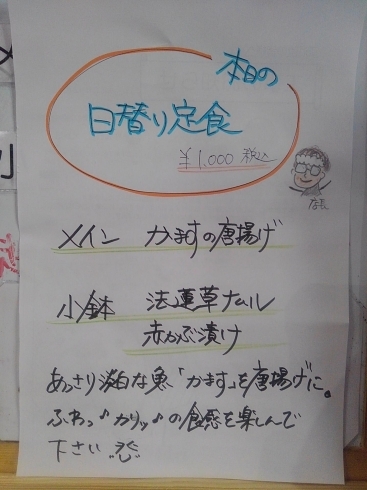 本日の
日替り定食
¥1,000 税込
メイン かますの唐揚げ
小鉢 法蓮草ナムル
赤かぶ漬け
あっさり淡白な魚「かます」を唐揚げに。
ふわっ♪カリッ♪の食感を楽しんで
下さい